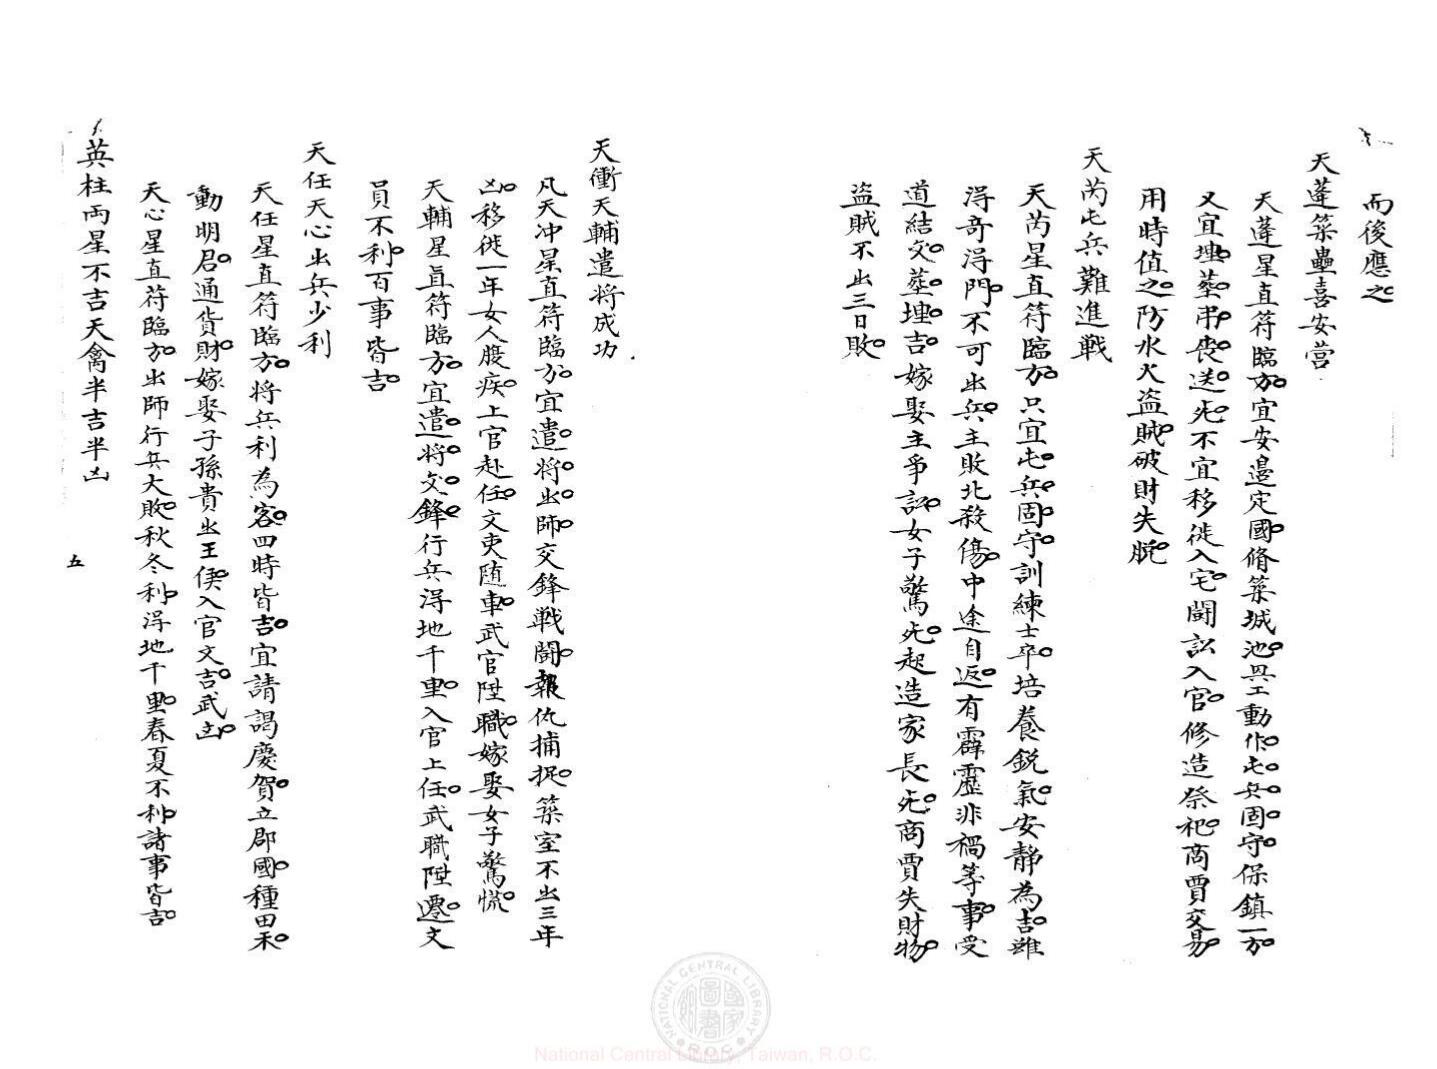 而後應之
天蓬築壘喜安营
天蓬星直符臨方宜安邉定國脩築城池興工動作屯兵固守保鎮一方
又宜埋葬弔喪送死不宜移徙入宅鬪訟入官修造祭祀商賈交易
用時值之防水火盜賊破財失脫
天芮屯兵難進戰
天芮星直符臨方只宜屯兵固守訓練士卒培養銳氣安靜為吉雖
淂奇淂門不可出兵主敗北殺傷中途自返有霹靂非禍等事受
道結交葬埋吉嫁娶主爭訟女子驚死起造家長死商賈失財物
盜賊不出三日敗
天衝天輔遣将成功
凡天冲星直符臨方宜遣将出師交鋒戰鬪報仇捕捉築室不出三年
凶移徙一年女人腹疾上官赴任文吏随車武官陞職嫁娶女子驚慌
天輔星直符臨方宜遣将交鋒行兵淂地千里入官上任武職陞遷文
員不利百事皆吉
天任天心出兵少利
天任星直符臨方将兵利為客四時皆吉宜請謁慶賀立郡國種田禾
動明君通貨財嫁娶子孫貴出王侯入官文吉武凶
天心星直苻臨方出師行兵大敗秋冬利淂地千里春夏不利諸事皆吉
英柱両星不吉天禽半吉半凶
五
National Central Library, Taiwan, R.O.C.
NATIONAL CENTRAL LIBRARY
R.O.C.
國家圖書館